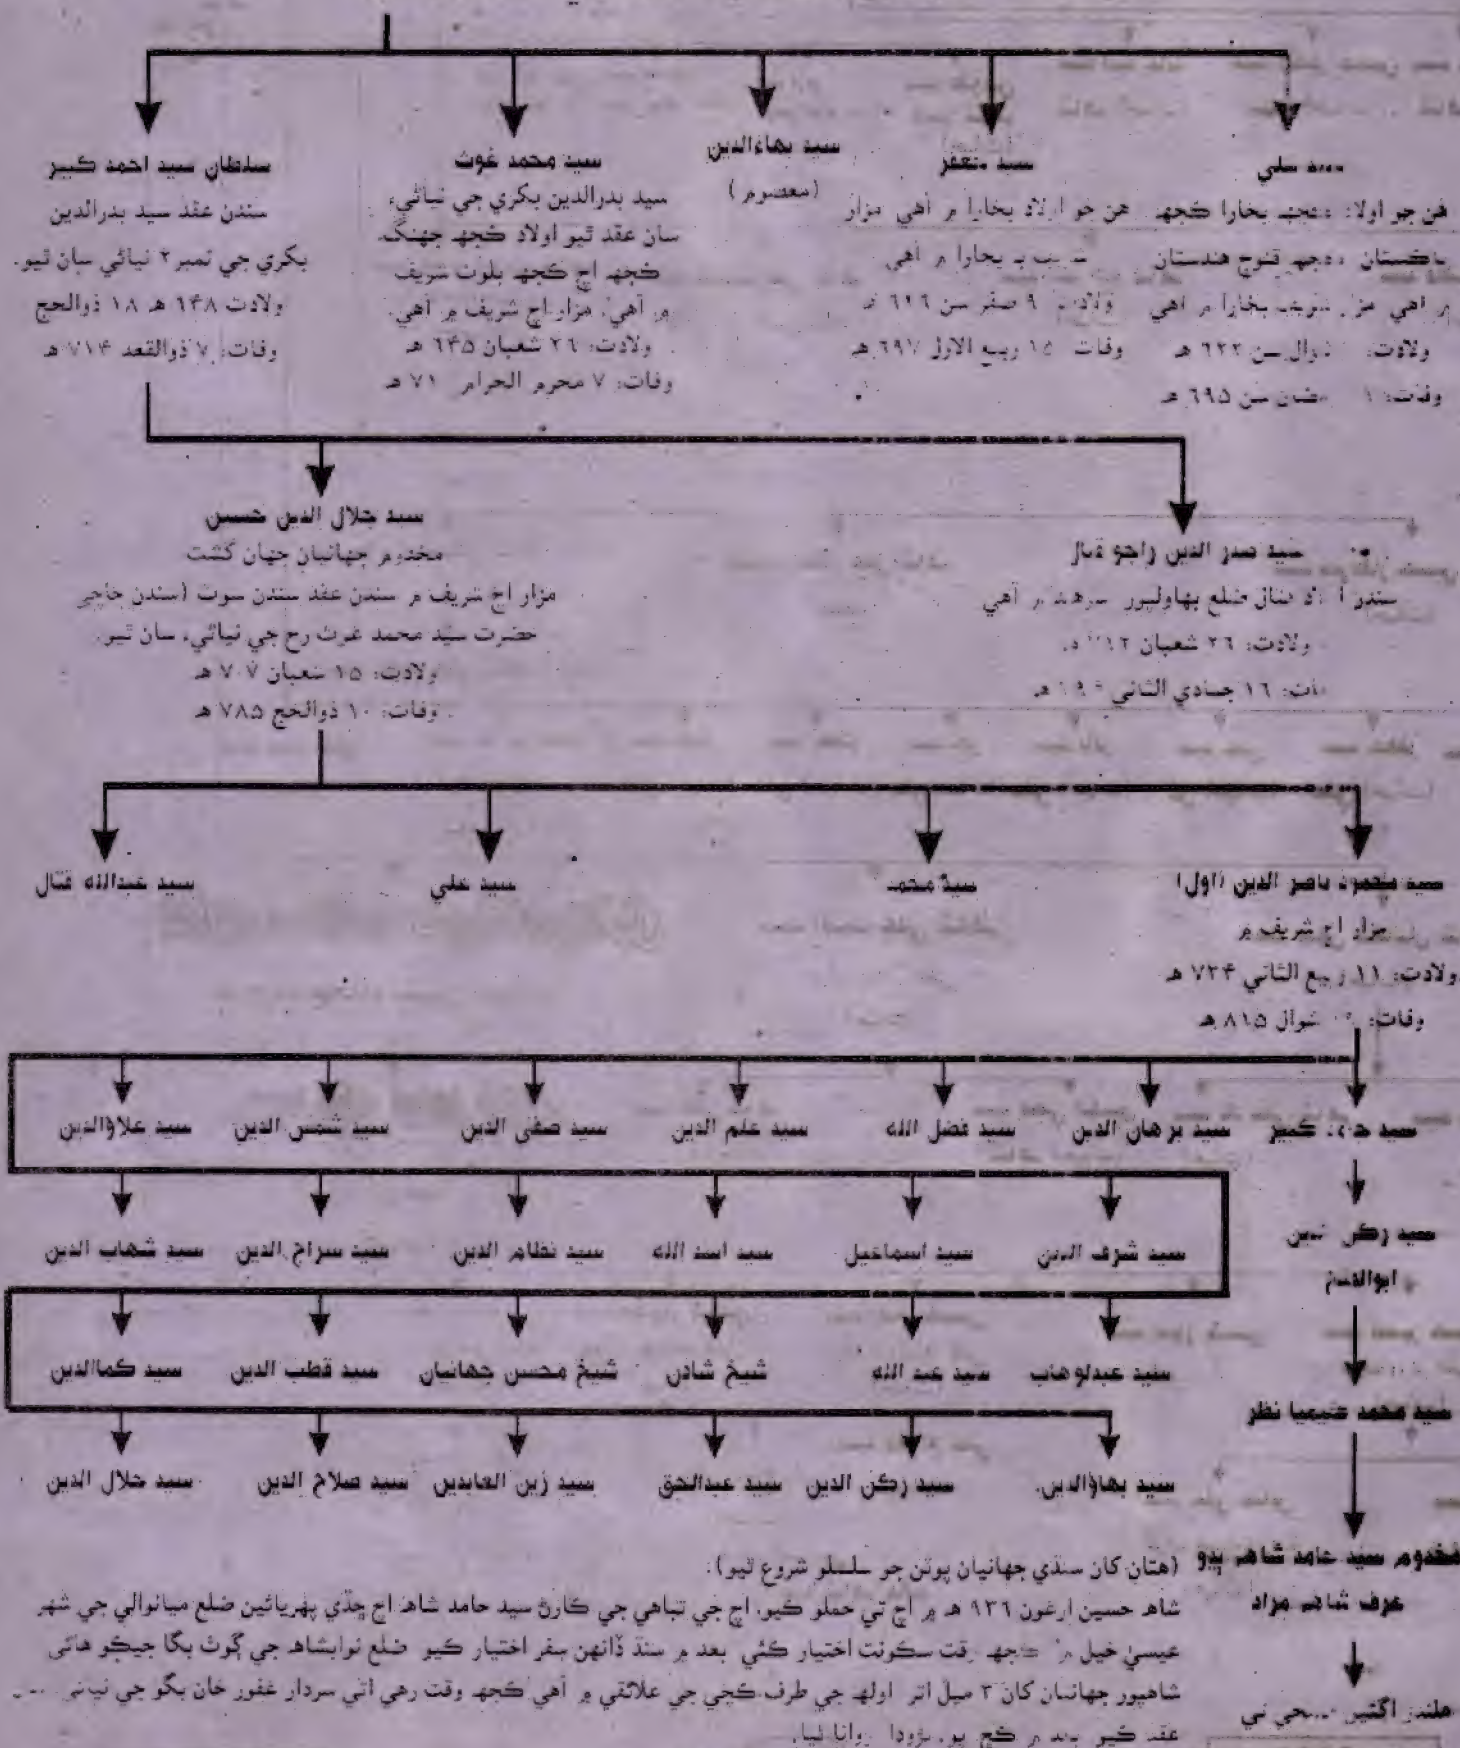 سيد علي
هن جو اولاد ڪجهه بخارا ڪجهه
پاڪستان ڪجهه قنوج هندستان
۾ آهي مزار شريف بخارا ۾ آهي
ولادت: شوال سن ٦٢٢ هه
وفات: رمضان سن ٦٩۵ هه
سيد جعفر
هن جو اولاد بخارا ۾ آهي مزار
شريف به بخارا ۾ آهي
ولادت: ٩ صفر سن هه
وفات: ١۵ ربيع الاول ٦٩٧ هه
سيد بهاءالدين
(معصوم)
سيد محمد غوث
سيد بدرالدين بکري جي نياڻيءَ
سان عقد ٿيو اولاد ڪجهه جهنگ
ڪجهه اچ ڪجهه بلوٽ شريف
۾ آهي. مزار اچ شريف ۾ آهي.
ولادت: ٢٦ شعبان ٦۴۵ هه
وفات: ٧ محرم الحرام هه
سلطان سيد احمد ڪبير
سندن عقد سيد بدرالدين
بکري جي نمبر ٢ نياڻي سان ٿيو.
ولادت ٦۴٨ هه ١٨ ذوالحج
وفات: ٧ ذوالقعد ٧١۴ هه
سيد صدر الدين راجو قتال
سندن اولاد ضلع بهاولپور ۾ آهي
ولادت: ٢٦ شعبان
وفات: ١٦ جمادي الثاني هه
سيد جلال الدين حسين
مخدوم جهانيان جهان گشت
مزار اچ شريف ۾ سندن عقد سندن سوٽ (سندن چاچي
حضرت سيد محمد غوث رح جي نياڻيءَ سان ٿيو.
ولادت: ١۵ شعبان ٧٠٧ هه
وفات: ١٠ ذوالحج ٧٨۵ هه
سيد محمود ناصر الدين (اول)
مزار اچ شريف ۾
ولادت: ١١ ربيع الثاني ٧٣۴ هه
وفات: شوال ٨١۵ هه
سيد محمد
سيد علي
سيد عبدالله قتال
سيد حامد ڪبير سيد برهان الدين سيد فضل الله سيد علم الدين سيد صفي الدين سيد شمس الدين سيد علاؤالدين
سيد رڪن الدين
ابوالفتح
سيد شرف الدين سيد اسماعيل سيد اسد الله سيد نظام الدين سيد سراج الدين سيد شهاب الدين
سيد عبدلوهاب سيد عبد الله شيخ شادن شيخ محسن جهانيان سيد قطب الدين سيد ڪماالدين
سيد محمد ڪيميا نظر
سيد بهاؤالدين. سيد رڪن الدين سيد عبدالحق سيد زين العابدين سيد صلاح الدين سيد جلال الدين
مخدوم سيد حامد شاهه ٻڍو
عرف شاهه مراد
هلندڙ اڳئين صفحي تي
(هتان کان سنڌي جهانيان پوٽن جو سلسلو شروع ٿيو).
شاهه حسين ارغون ٩٣٦ هه ۾ اچ تي حملو ڪيو. اچ جي تباهي جي ڪارڻ سيد حامد شاهه اچ ڇڏي پهريائين ضلع ميانوالي جي شهر
عيسيٰ خيل ۾ ڪجهه وقت سڪونت اختيار ڪئي بعد ۾ سنڌ ڏانهن سفر اختيار ڪيو ضلع نوابشاهه جي ڳوٺ بگا جيڪو هاڻي
شاهپور جهانيان کان ٣ ميل اتر اولهه جي طرف ڪچي جي علائقي ۾ آهي ڪجهه وقت رهي اتي سردار غفور خان بگو جي نياڻي سان
عقد ڪيو بعد ۾ ڪڇ ڀڄ، بڙودا روانا ٿيا.